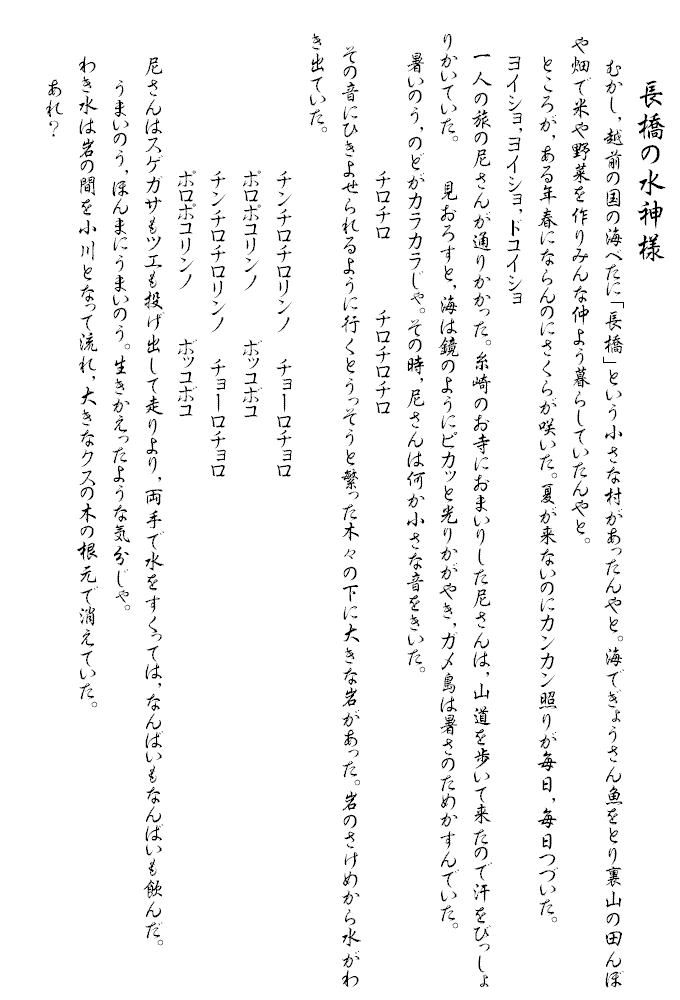 長橋の水神様
むかし,越前の国の海べたに「長橋」という小さな村があったんやと。海でぎょうさん魚をとり裏山の田んぼ
や畑で米や野菜を作りみんな仲よう暮らしていたんやと。
ところが,ある年春にならんのにさくらが咲いた。夏が来ないのにカンカン照りが毎日,毎日つづいた。
ヨイショ,ヨイショ,ドコイショ
一人の旅の尼さんが通りかかった。糸崎のお寺におまいりした尼さんは,山道を歩いて来たので汗をびっしょ
りかいていた。 見おろすと,海は鏡のようにピカッと光りかがやき,ガメ島は暑さのためかすんでいた。
暑いのう,のどがカラカラじゃ。その時,尼さんは何か小さな音をきいた。
チロチロ チロチロチロ
その音にひきよせられるように行くとうっそうと繁った木々の下に大きな岩があった。岩のさけめから水がわ
き出ていた。
チンチロチロリンノ チョーロチョロ
ポロポコリンノ ボッコボコ
チンチロチロリンノ チョーロチョロ
ポロポコリンノ ボッコボコ
尼さんはスゲガサもツエも投げ出して走りより,両手で水をすくっては,なんばいもなんばいも飲んだ。
うまいのう,ほんまにうまいのう。生きかえったような気分じゃ。
わき水は岩の間を小川となって流れ,大きなクスの木の根元で消えていた。
あれ?